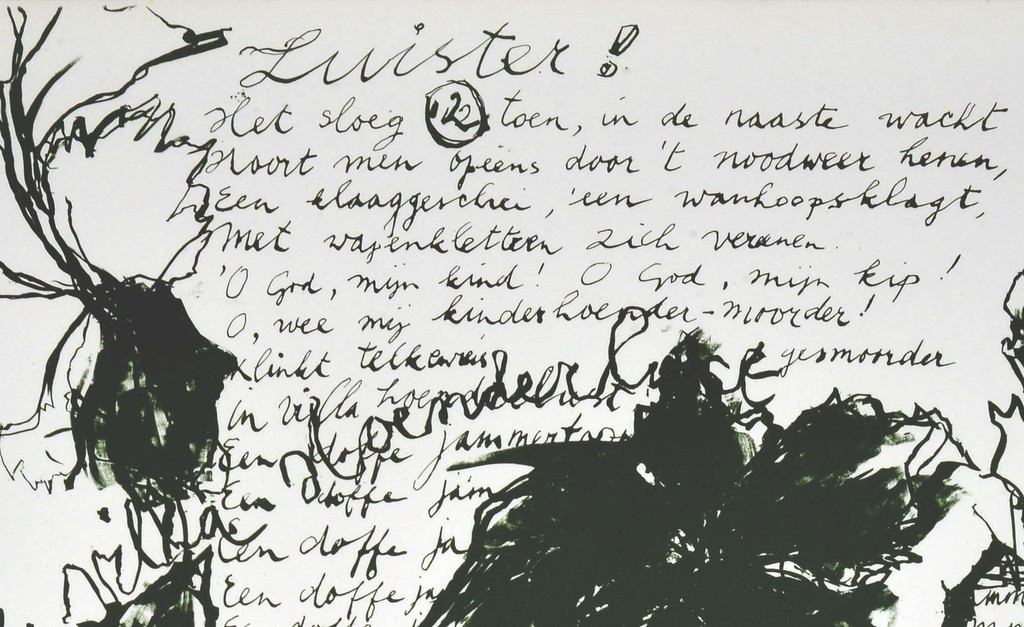 Luister!
Het sloeg 12 toen, in de naaste wacht
Hoort men opeens door 't noodweer henen,
Een klaaggeschrei, 'een wanhoopsklagt,
Met wapenkletteren zich verenen.
'O God, mijn kind! O God, mijn kip!
O, wee mij kinderhoender-moorder!
Klinkt telkenreis gesmoorder
in villa hoenderlust
Een doffe jammertoon
Een doffe jam
Een doffe ja
Een doffe ja
villa
Hoendeerlust